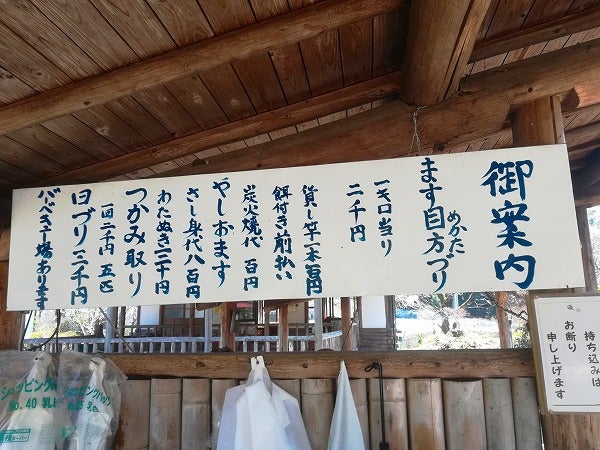 御案内
ます目方づり
めかた
一キロ当り
二千円
貸し竿一本百円
餌付き前払い
炭火焼代 百円
やしおます
さし身代八百円
わたぬき二千円
つかみ取り
一回二千円 五匹
日づり三千円
バーベキュー場あります
持ち込みは
お断り
申し上げます
ショッピングバッグ
NO. 40 乳